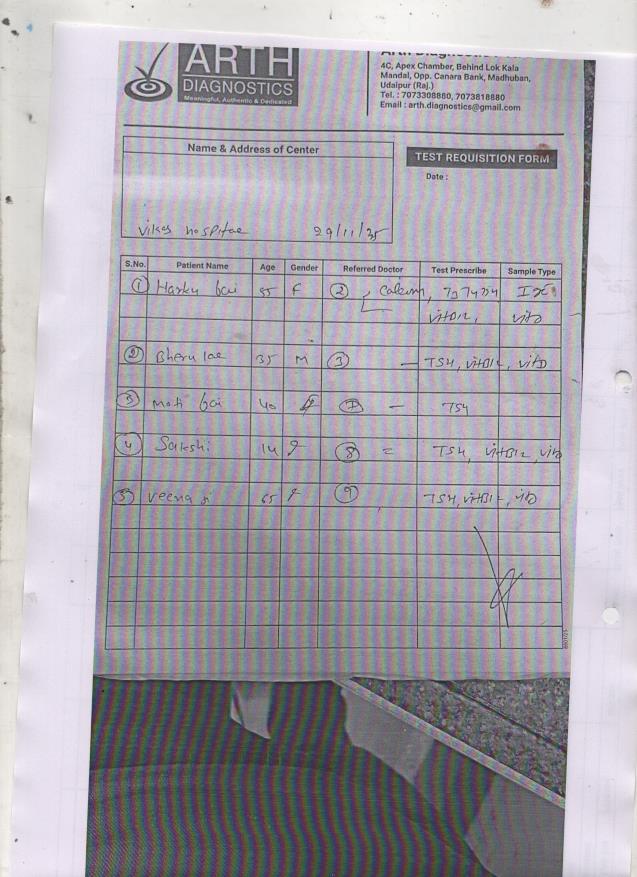 ARTH
DIAGNOSTICS
Meaningful, Authentic & Dedicated
4C, Apex Chamber, Behind Lok Kala
Mandal, Opp. Canara Bank, Madhuban,
Udaipur (Raj.)
Tel. : 7073308880, 7073818880
Email : arth.diagnostics@gmail.com
Name & Address of Center
TEST REQUISITION FORM
Date :
29/11/25
S.No. Patient Name Age Gender Referred Doctor Test Prescribe Sample Type
1 bai F 2
VitB12, VitD
2 Bheru lae 35 M 3 — TSH, VitB12, VitD
3 moti bai 40 7 — TSH
4 Sakshi 14 F 8 = TSH, VitB12, VitD
5 veena 65 F 9 TSH, VitB12, VitD